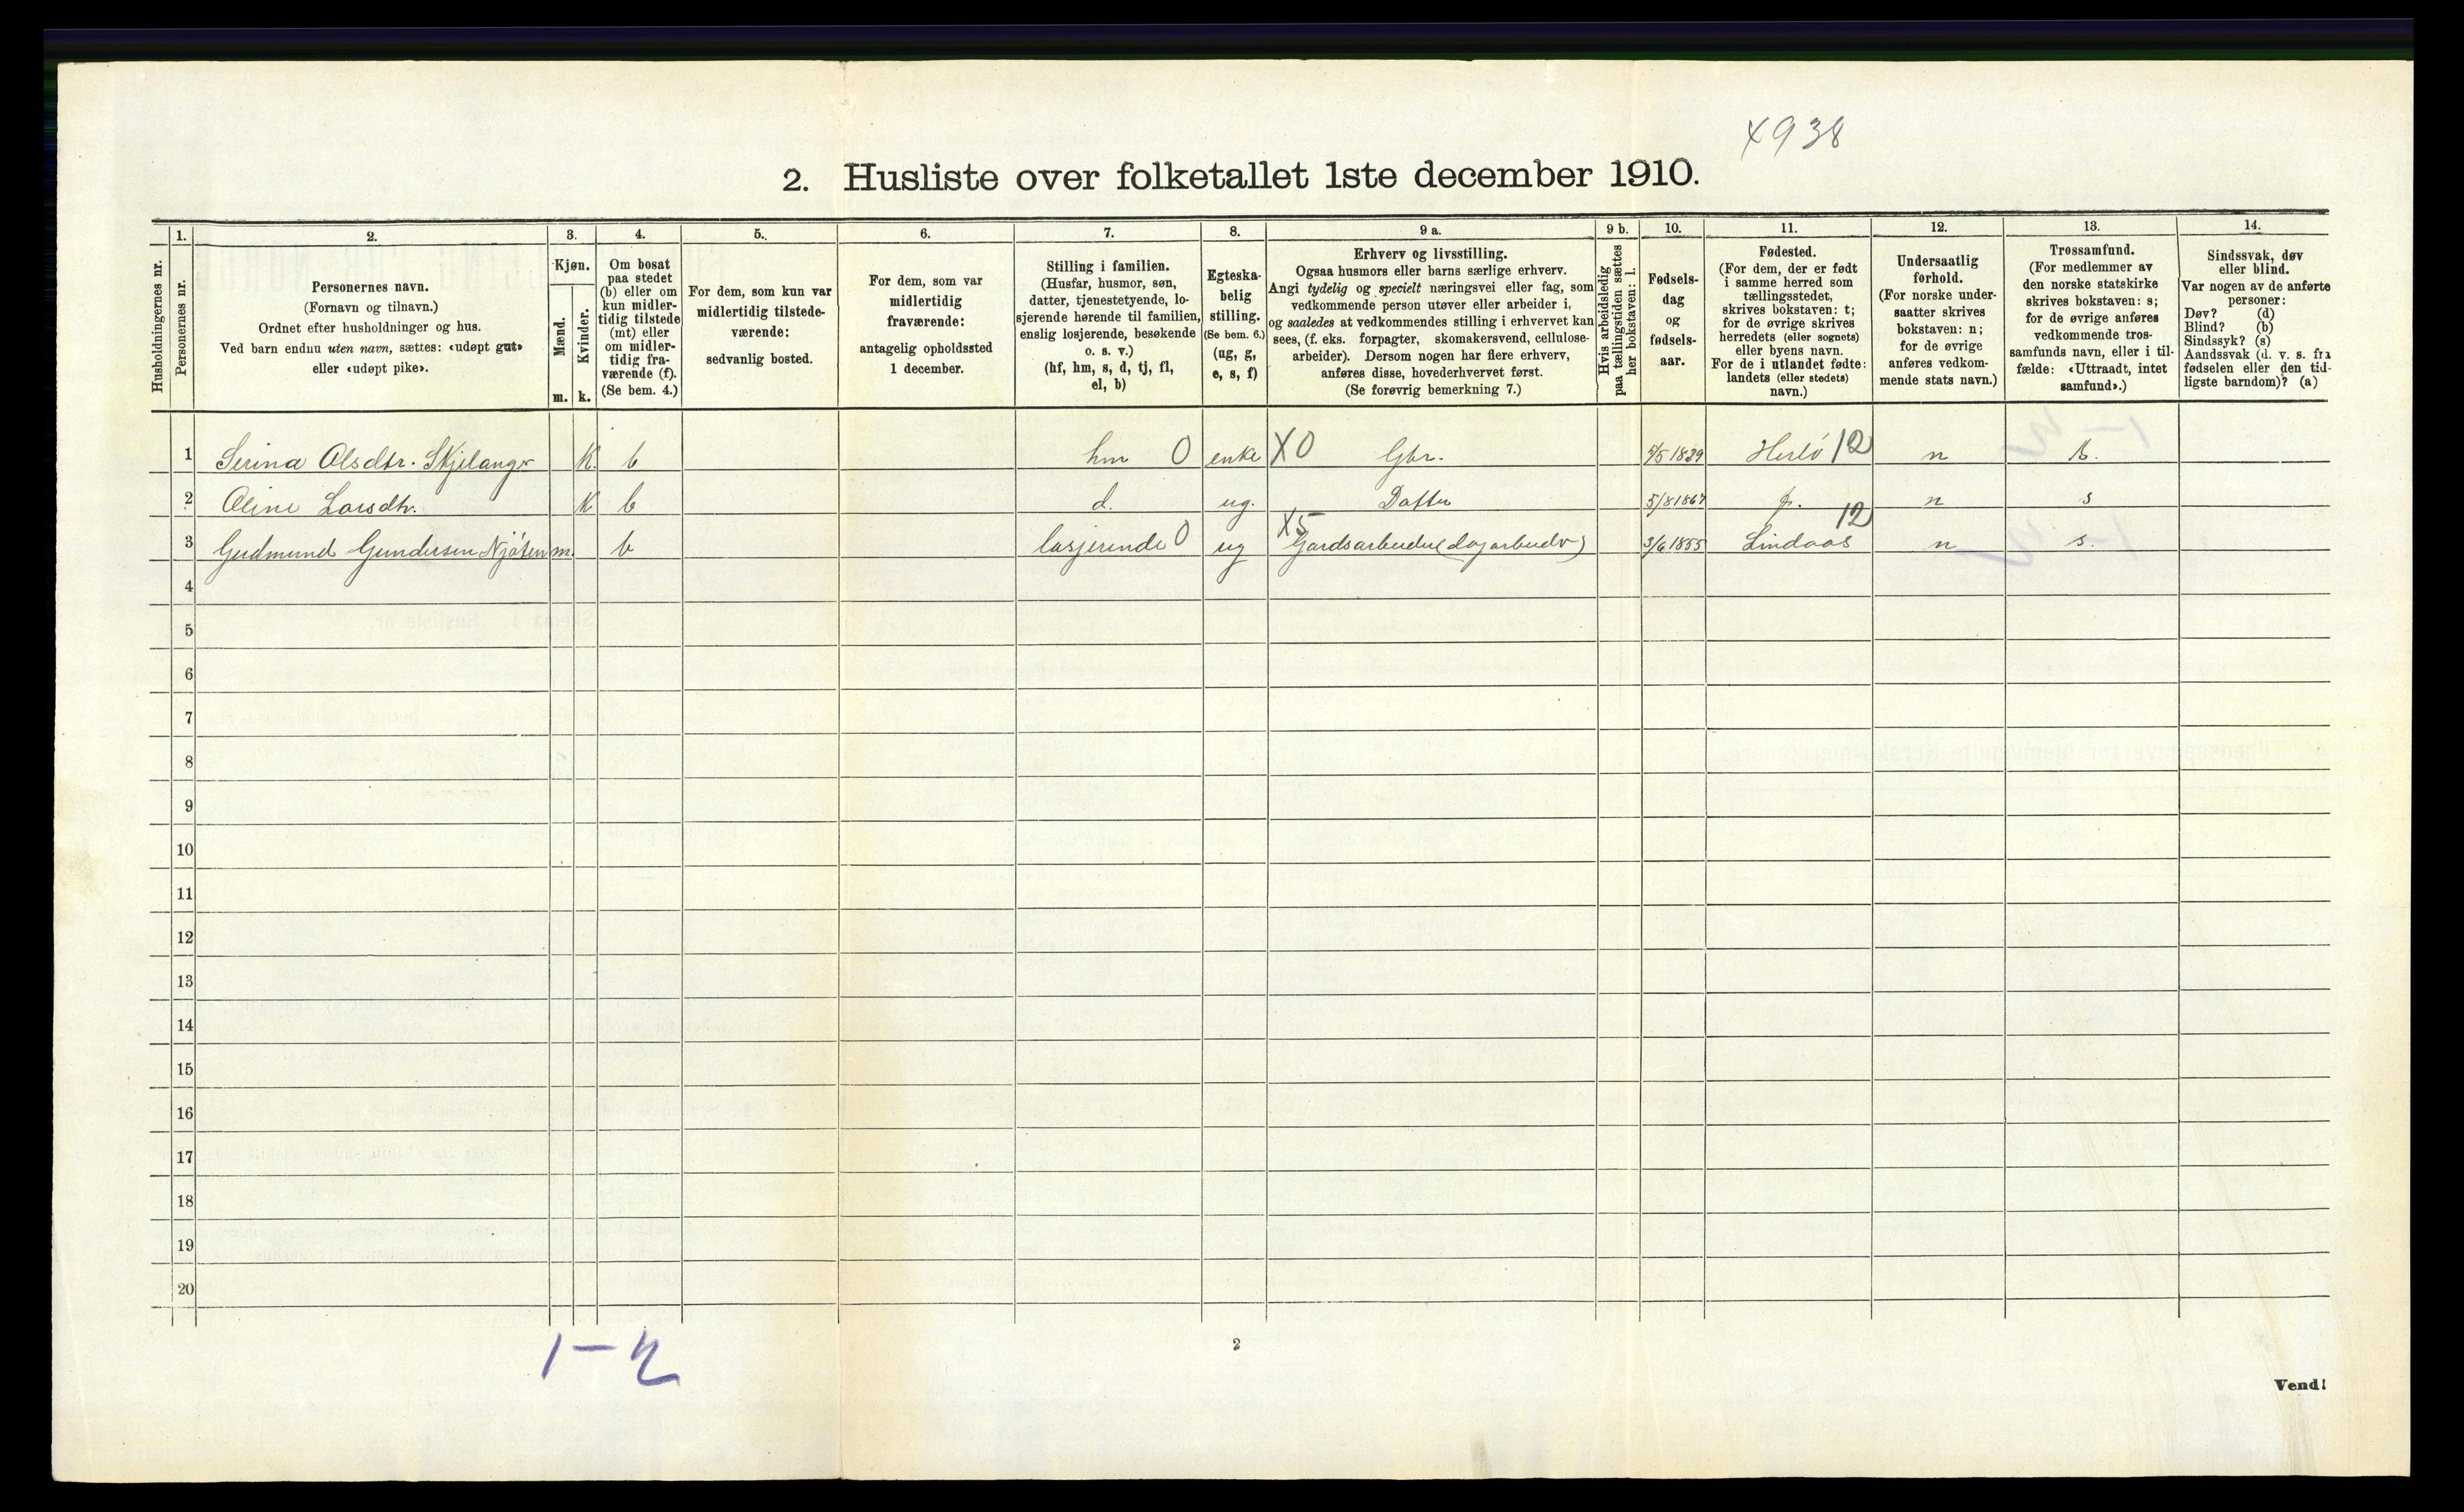 X938
2. Husliste over folketallet 1ste december 1910.
Husholdningernes nr.
1.
Personernes nr.
2.
Personernes navn.
(Fornavn og tilnavn.)
Ordnet efter husholdninger og hus.
Ved barn endnu uten navn, sættes: «udøpt gut»
eller «udøpt pike».
3.
Kjøn.
Mænd.
Kvinder.
m. k.
4.
Om bosat
paa stedet
(b) eller om
kun midler-
tidig tilstede
(mt) eller
om midler-
tidig fra-
værende (f).
(Se bem. 4.)
5.
For dem, som kun var
midlertidig tilstede-
værende:
sedvanlig bosted.
6.
For dem, som var
midlertidig
fraværende:
antagelig opholdssted
1 december.
7.
Stilling i familien.
(Husfar, husmor, søn,
datter, tjenestetyende, lo-
sjerende hørende til familien,
enslig losjerende, besøkende
o. s. v.)
(hf, hm, s, d, tj, fl,
el, b)
8.
Egteska-
belig
stilling.
(Se bem. 6.)
(ug, g,
e, s, f)
9 a.
Erhverv og livsstilling.
Ogsaa husmors eller barns særlige erhverv.
Angi tydelig og specielt næringsvei eller fag, som
vedkommende person utøver eller arbeider i,
og saaledes at vedkommendes stilling i erhvervet kan
sees, (f. eks. forpagter, skomakersvend, cellulose-
arbeider). Dersom nogen har flere erhverv,
anføres disse, hovederhvervet først.
(Se forøvrig bemerkning 7.)
9 b.
Hvis arbeidsledig
paa tællingstiden sættes
her bokstaven: l.
10.
Fødsels-
dag
og
fødsels-
aar.
11.
Fødested.
(For dem, der er født
i samme herred som
tællingsstedet,
skrives bokstaven: t;
for de øvrige skrives
herredets (eller sognets)
eller byens navn.
For de i utlandet fødte:
landets (eller stedets)
navn.)
12.
Undersaatlig
forhold.
(For norske under-
saatter skrives
bokstaven: n;
for de øvrige
anføres vedkom-
mende stats navn.)
13.
Trossamfund.
(For medlemmer av
den norske statskirke
skrives bokstaven: s;
for de øvrige anføres
vedkommende tros-
samfunds navn, eller i til-
fælde: «Uttraadt, intet
samfund».)
14.
Sindssvak, døv
eller blind.
Var nogen av de anførte
personer:
Døv? (d)
Blind? (b)
Sindssyk? (s)
Aandssvak (d. v. s. fra
fødselen eller den tid-
ligste barndom)? (a)
1 Serina Olsdtr. Skjelanger K. b hm 0 enke X0 Gbr. /5 1839 Herlö 12 n s.
2 Oline Larsdtr. K b d. ug. Datter 5/8 1867 n s
3 Gudmund Gundersen Njøten m. b losjerende 0 ug X5 Gardsarbeider (dagarbeider) 3/6 1855 Lindaas 12 n s.
4
5
6
7
8
9
10
11
12
13
14
15
16
17
18
19
20
1-2
2
Vend!